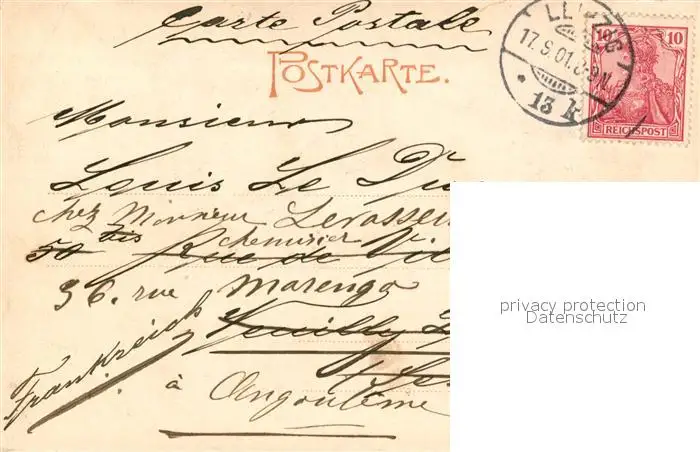 Carte Postale
POSTKARTE.
LEIPZIG
17.9.01.8-9N.
* 13 k
10 10
REICHSPOST
Monsieur
Louis Le Du
chez Monsieur Levasseu
50 bis chemisier
Rue de Vil
36. rue Marengo
Neuilly
Frankreich
à Angoulême
privacy protection
Datenschutz